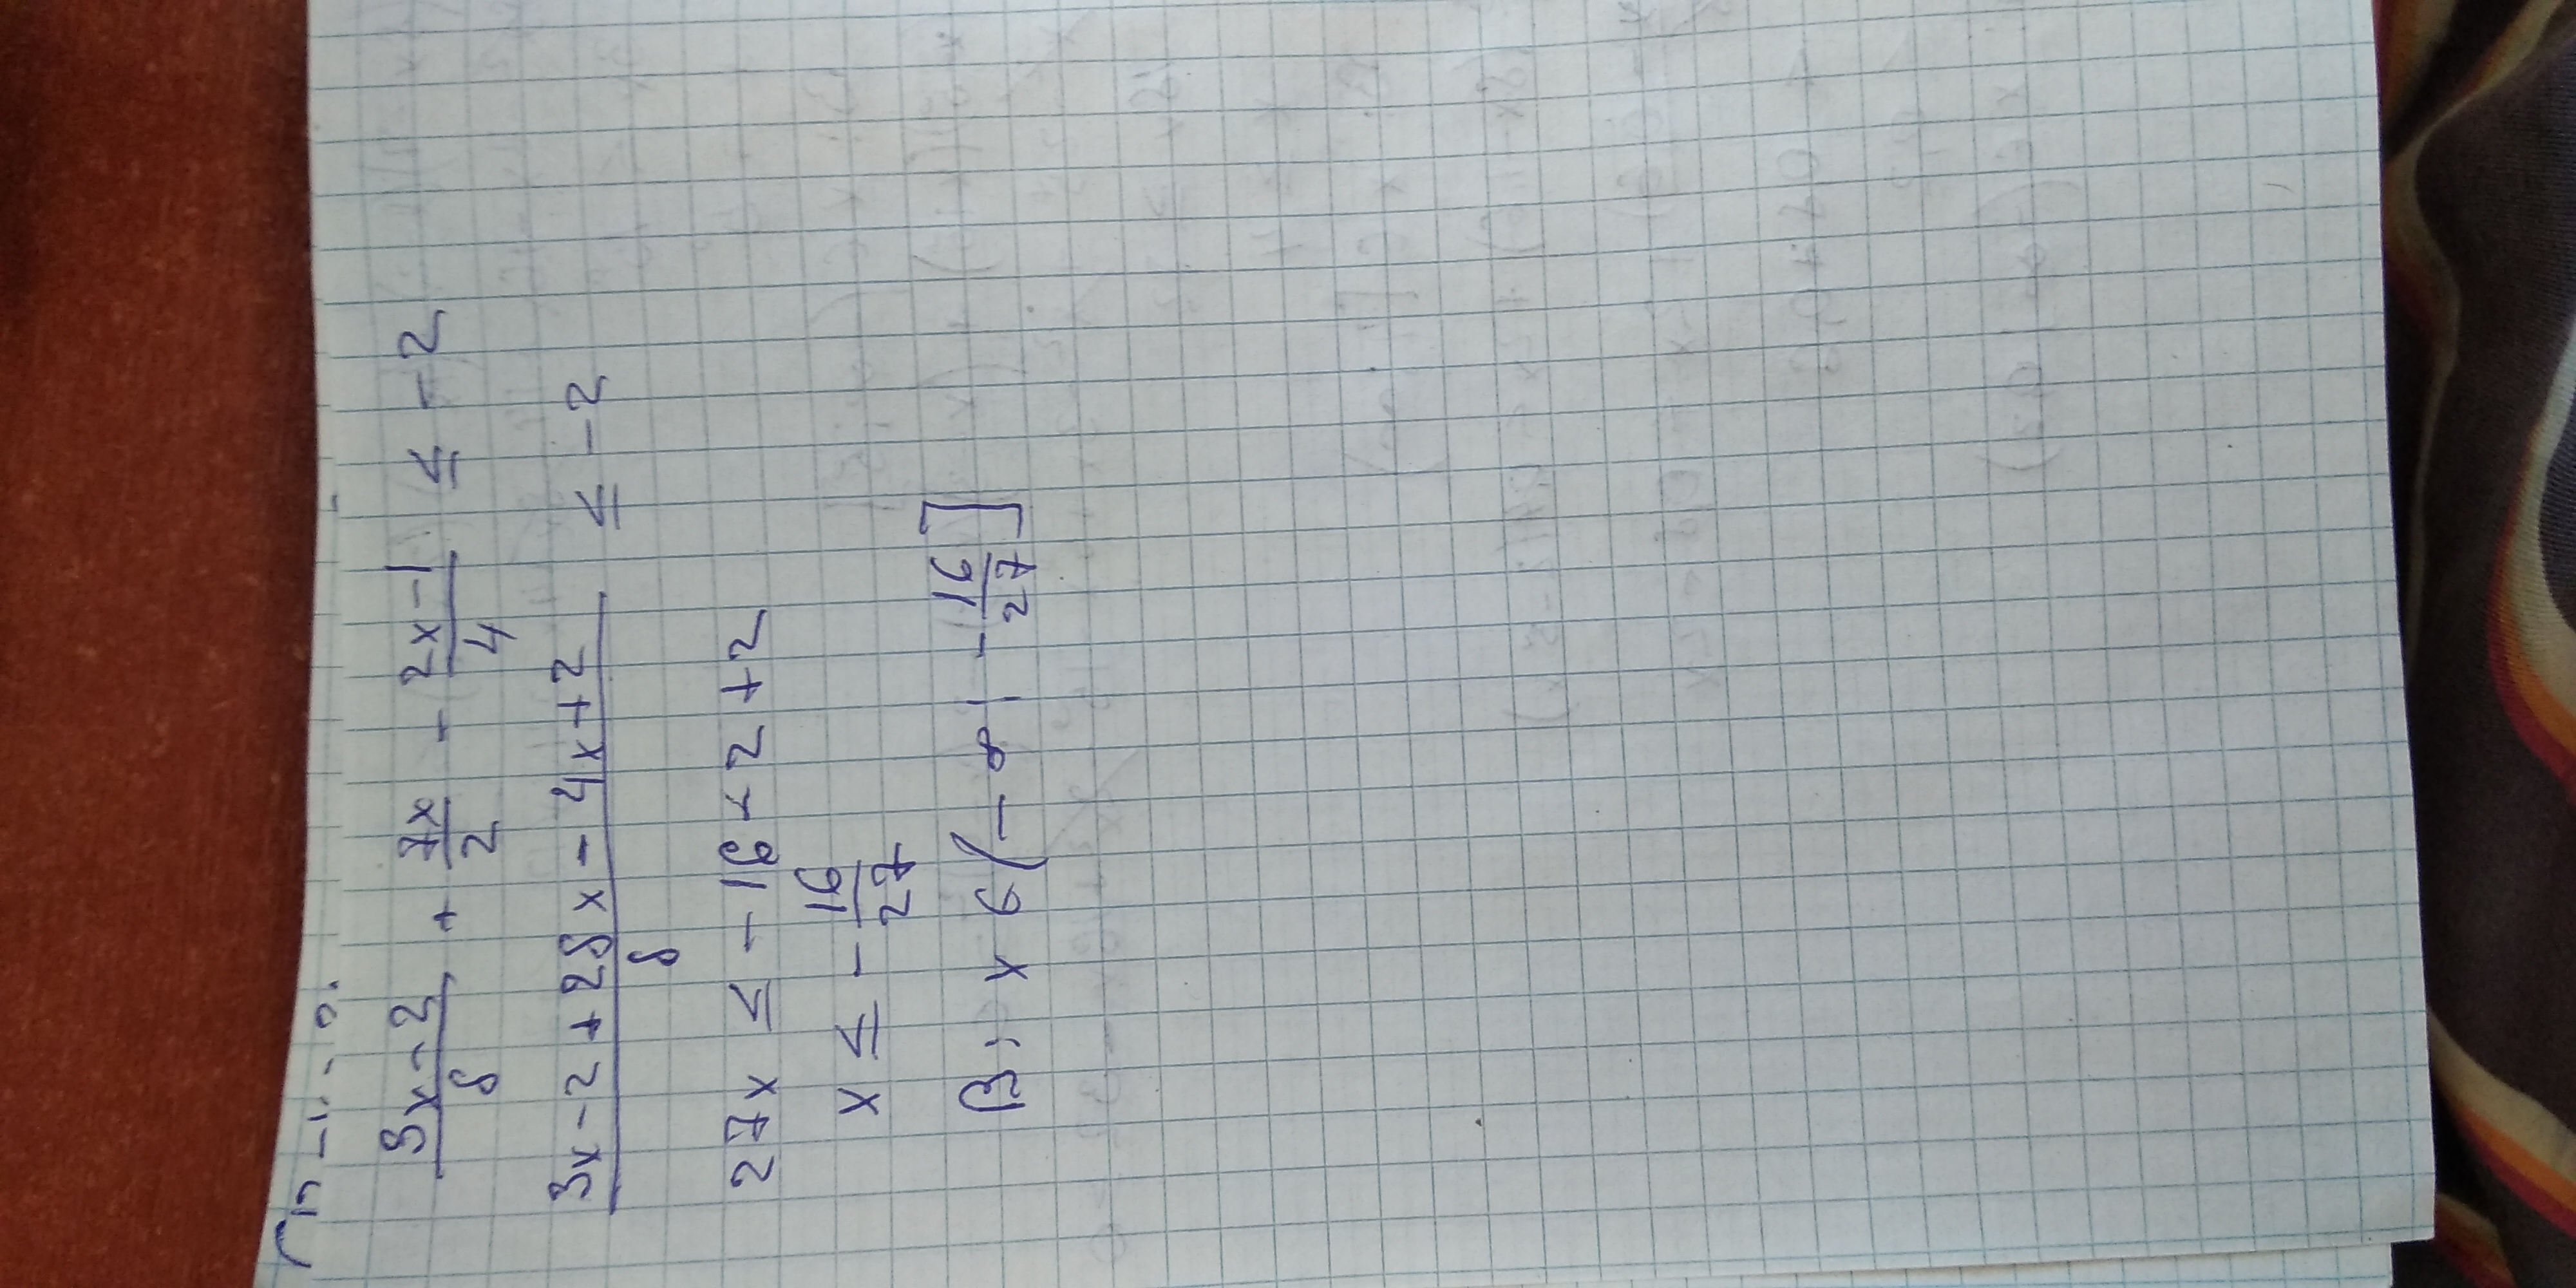 3x-2/8 + 7x/2 - 2x-1/4 ≤ -2
3x-2+28x-4x+2/8 ≤ -2
27x ≤ -16-2+2
x ≤ -16/27
В: x є (-∞; -16/27]